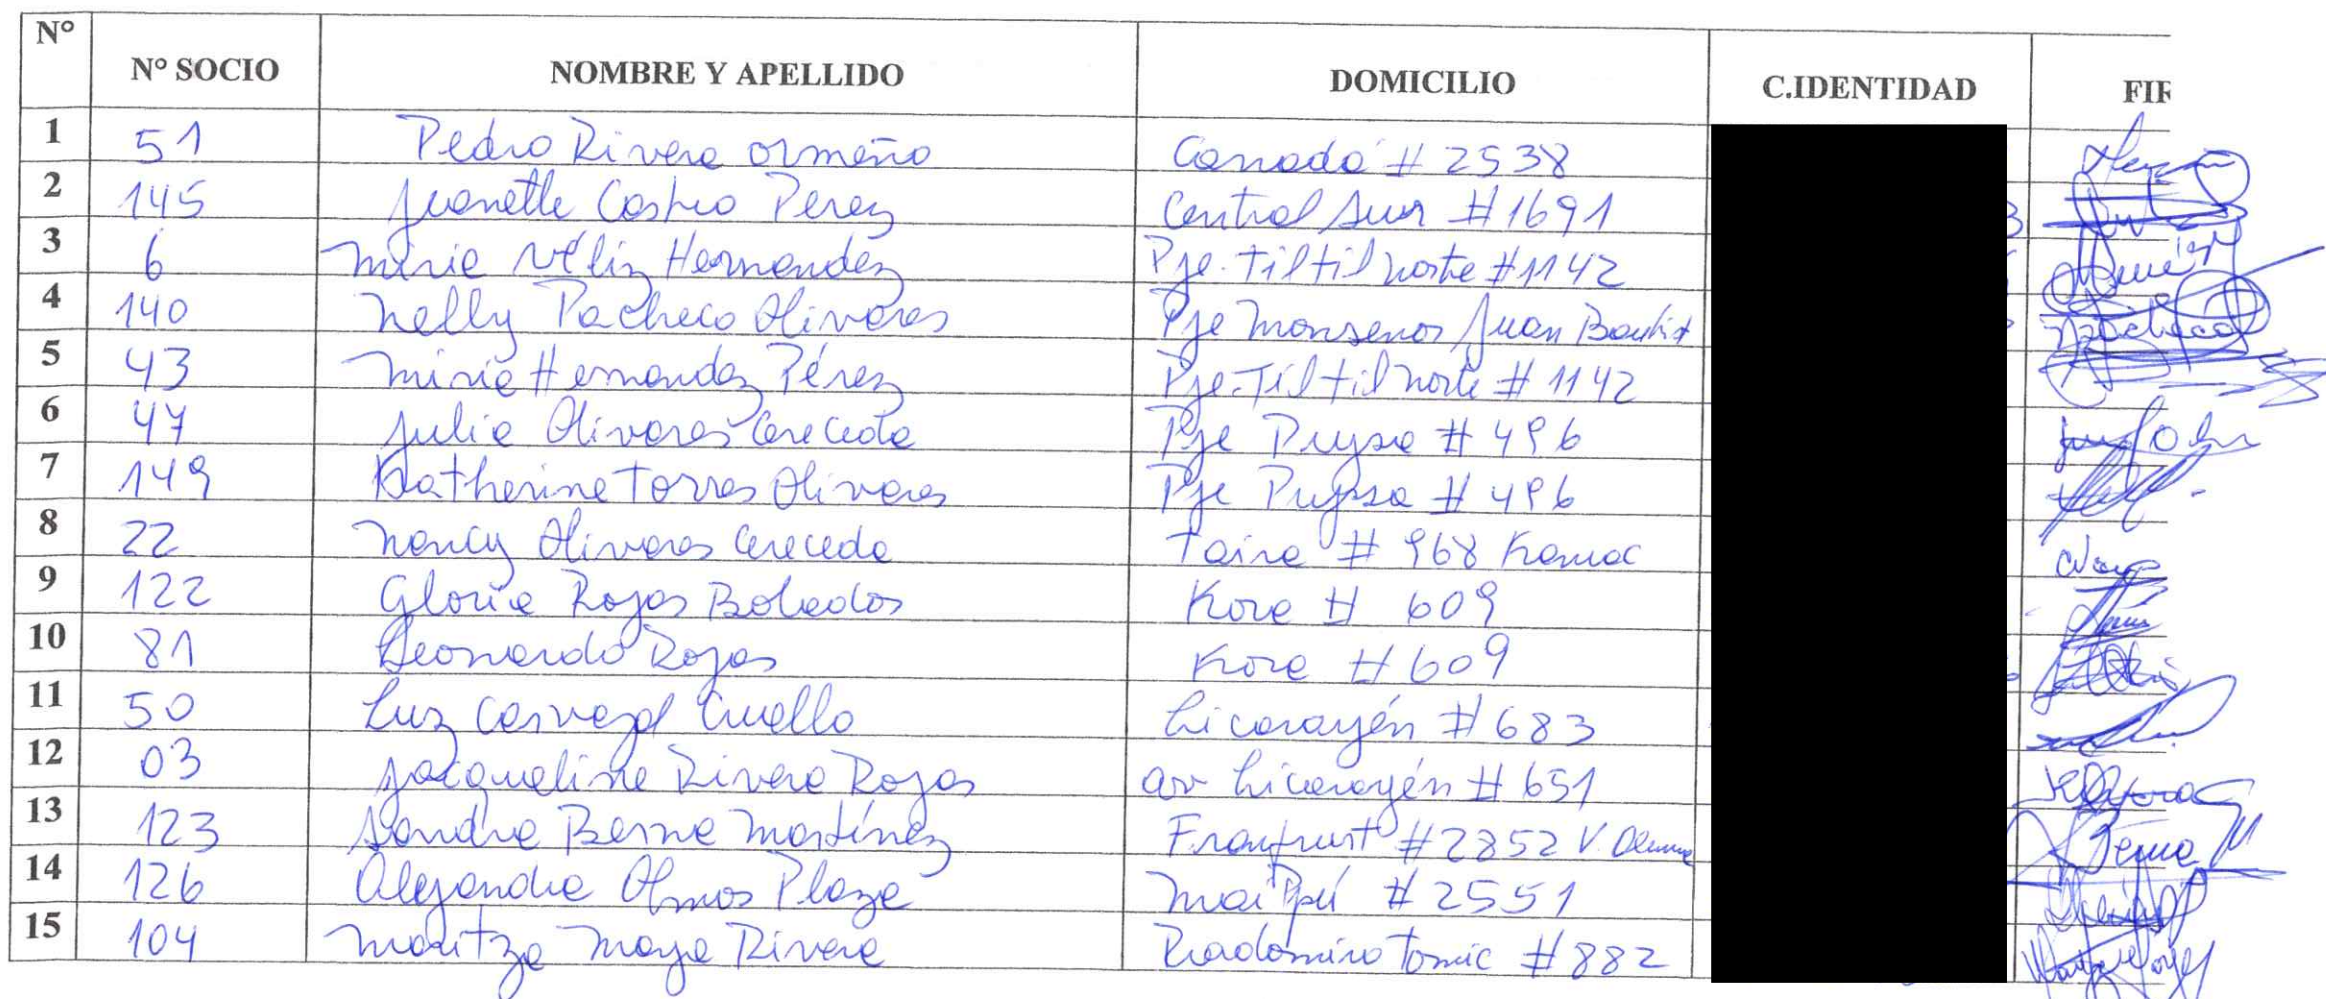 N° N° SOCIO NOMBRE Y APELLIDO DOMICILIO C.IDENTIDAD FIR
1 51 Pedro Rivera Ormeño Canadá # 2538
2 145 Juanette Castro Perez Central Sur #1691
3 6 Miria Véliz Hernandez Pje. Tiltil norte #1142
4 140 Nelly Pacheco Olivares Pje Monsenor Juan Bautist
5 43 Miria Hernandez Pérez Pje. Tiltil norte # 1142
6 47 Julia Olivares Cereceda Pje Puysa # 496
7 149 Katherine Torres Olivares Pje Puysa # 496
8 22 Nancy Olivares Cereceda Taira # 968 Kamac
9 122 Gloria Rojas Bolados Kore # 609
10 81 Leonardo Rojas Kore # 609
11 50 Luz Carvajal Cuello Licarayén # 683
12 03 Jacqueline Rivera Rojas av Licarayén # 651
13 123 Sandra Berna Martínez Franfrurt # 2852 V.
14 126 Alejandra Olmos Plaza Maipú # 2551
15 104 Maritza Moya Rivera Radomiro Tomic # 882